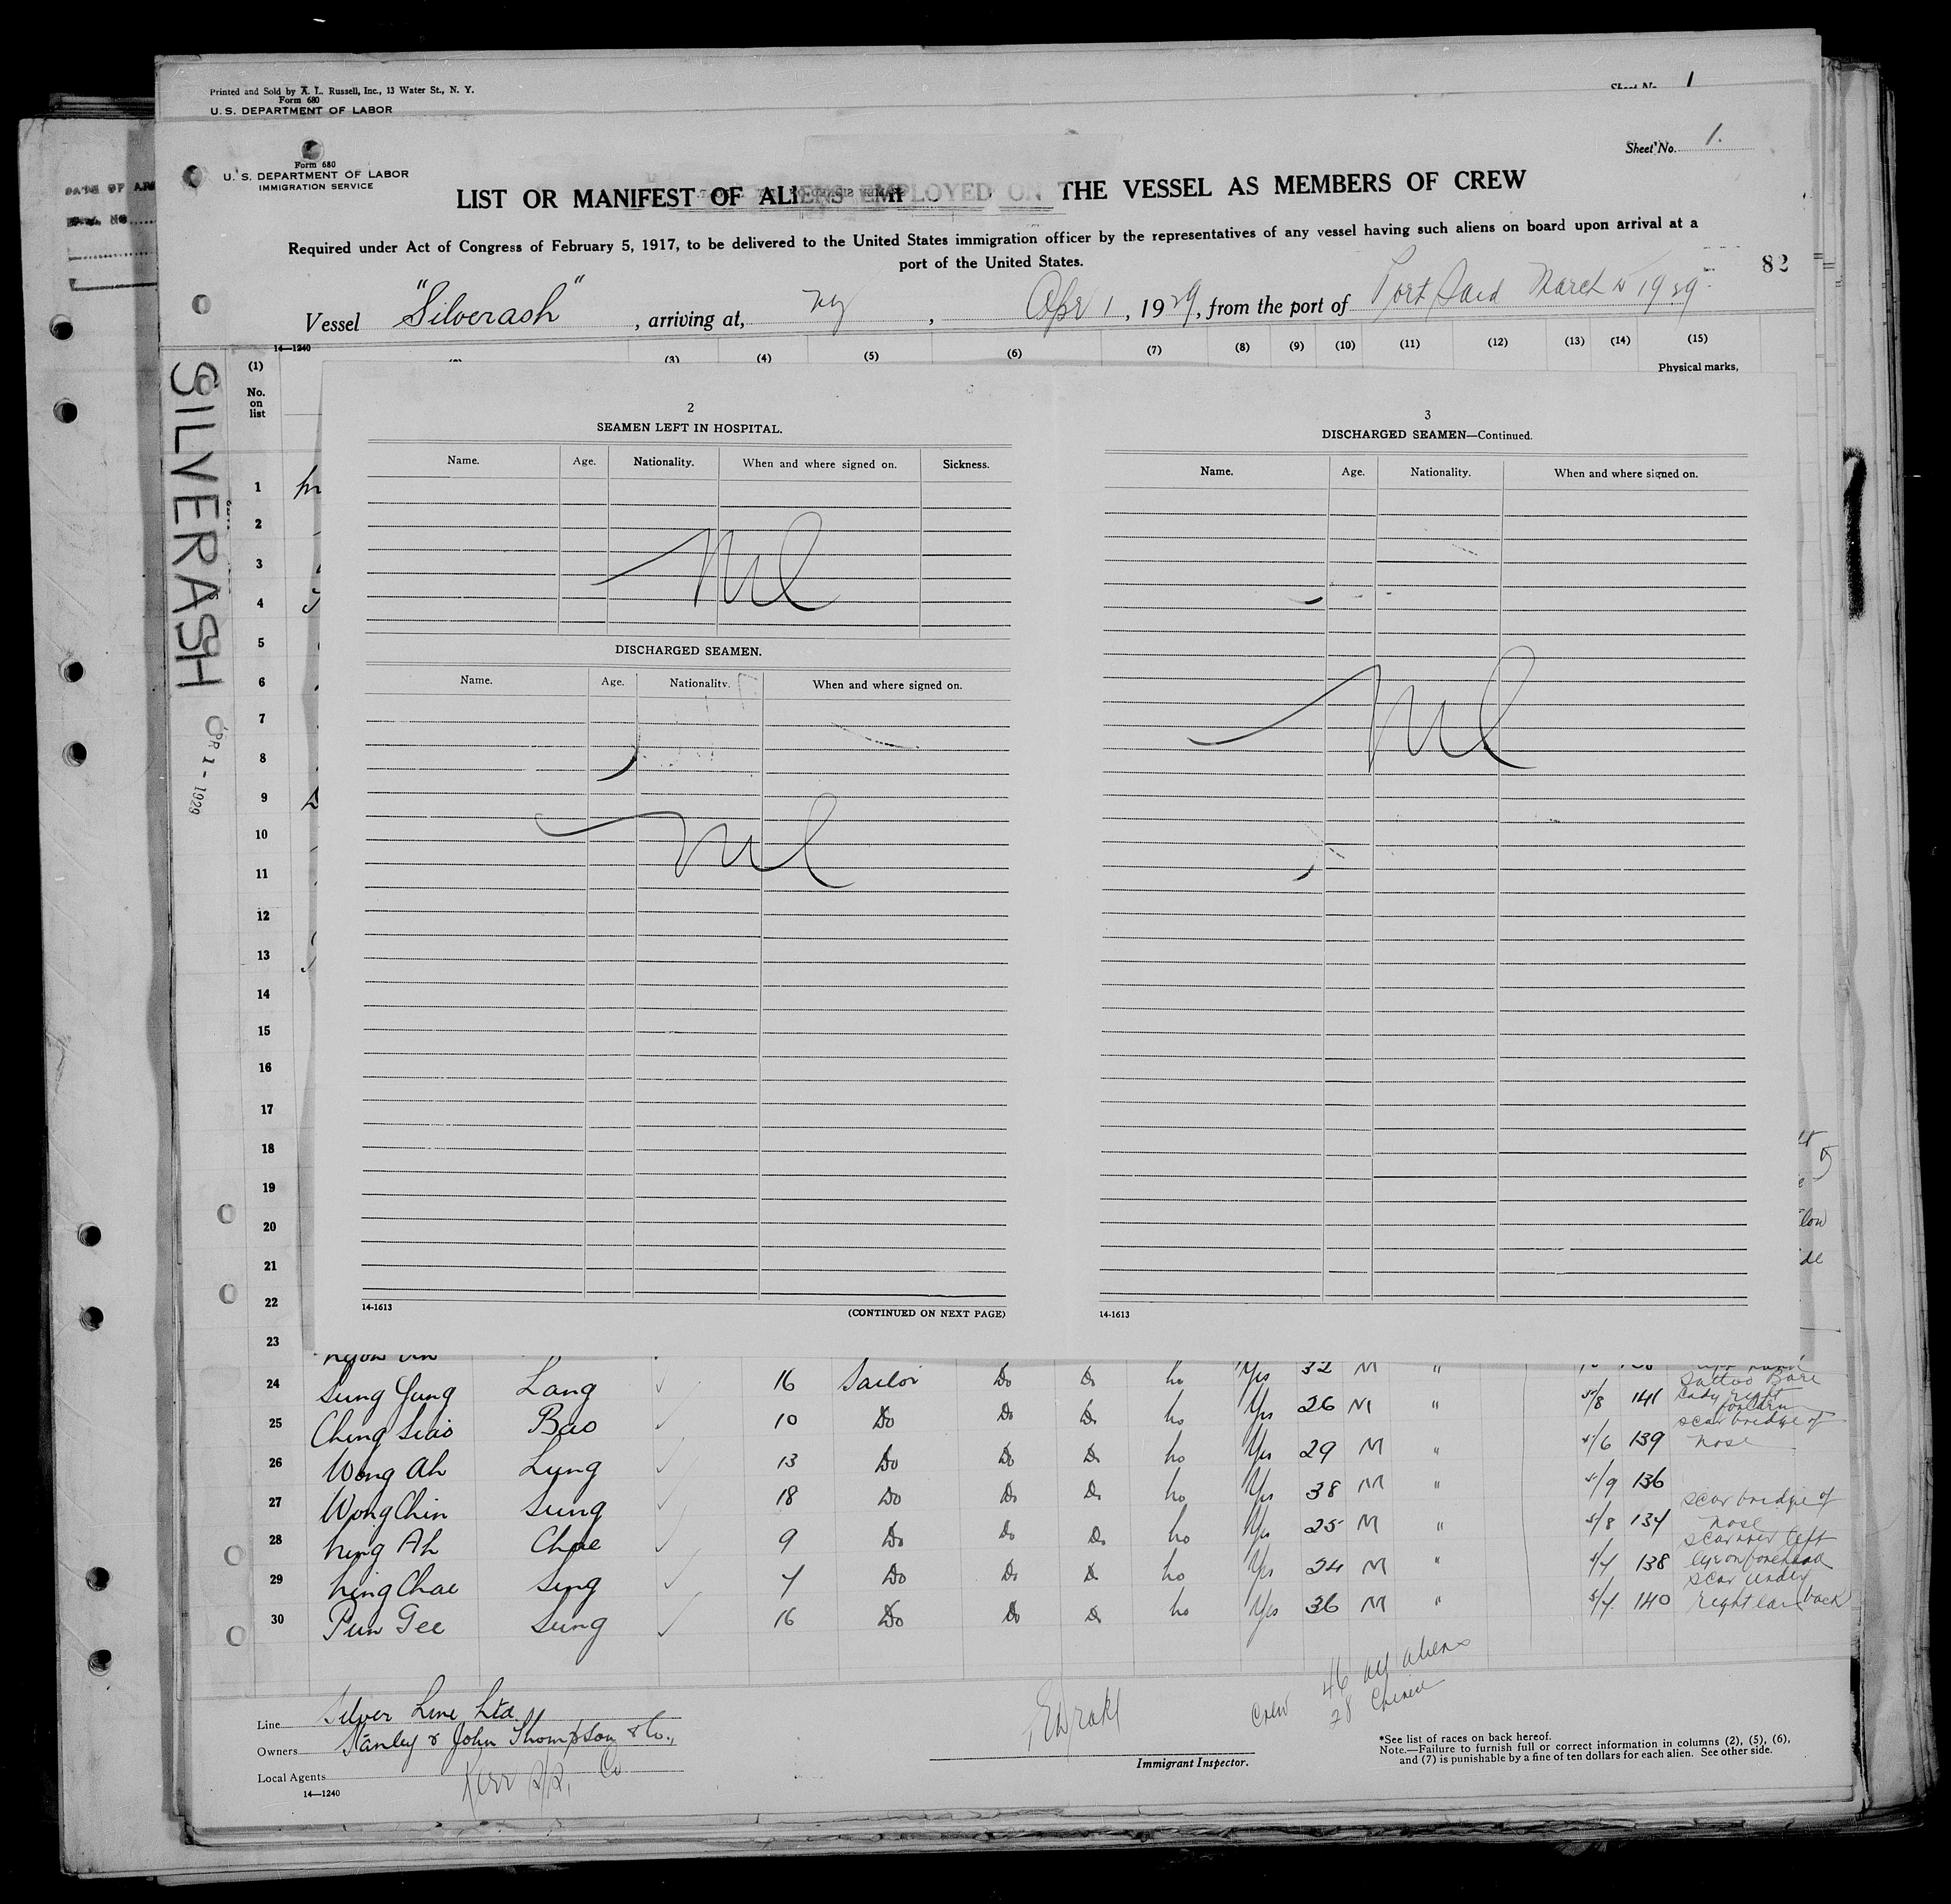 Printed and Sold by A. L. Russell, Inc., 13 Water St., N. Y.
Form 680
U. S. DEPARTMENT OF LABOR
Sheet No. 1
Sheet No. 1.
Form 680
U. S. DEPARTMENT OF LABOR
IMMIGRATION SERVICE
LIST OR MANIFEST OF ALIENS EMPLOYED ON THE VESSEL AS MEMBERS OF CREW
Required under Act of Congress of February 5, 1917, to be delivered to the United States immigration officer by the representatives of any vessel having such aliens on board upon arrival at a
port of the United States.
82
Vessel "Silverash", arriving at, NY, Apr 1, 1929, from the port of Port Said March 1929
14—1240
(1) (3) (4) (5) (6) (7) (8) (9) (10) (11) (12) (13) (14) (15)
No. on list
Physical marks,
SILVERASH
APR 1 - 1929
2
SEAMEN LEFT IN HOSPITAL.
Name. Age. Nationality. When and where signed on. Sickness.
Nil
DISCHARGED SEAMEN.
Name. Age. Nationality. When and where signed on.
Nil
14-1613
(CONTINUED ON NEXT PAGE)
3
DISCHARGED SEAMEN—Continued.
Name. Age. Nationality. When and where signed on.
Nil
14-1613
1
2
3
4
5
6
7
8
9
10
11
12
13
14
15
16
17
18
19
20
21
22
23
24 Sung Yung Lang 16 Sailor Do Do No Yes 26 M " 5/8 141
25 Ching Siao Bao 10 Do Do Do No Yes 29 M " 5/6 139 scar bridge of nose
26 Wong Ah Lung 13 Do Do Do No Yes 38 M 5/9 136
27 Wong Chin Sung 18 Do Do Do No Yes 25 M " 5/8 134 scar bridge of nose
28 Ning Ah Chae 9 Do Do Do No Yes 24 M " 5/7 138
29 Ning Chae Sing 7 Do Do Do No Yes 36 M " 5/7 140 scar under right ear (back)
30 Pun Gee Sung 16 Do Do Do No
Line Silver Line Ltd.
Owners Stanley & John Thompson & Co.,
Local Agents Kerr S/S, Co
14—1240
Immigrant Inspector.
Crew 46 all aliens
28 Chinese
*See list of races on back hereof.
Note.—Failure to furnish full or correct information in columns (2), (5), (6),
and (7) is punishable by a fine of ten dollars for each alien. See other side.